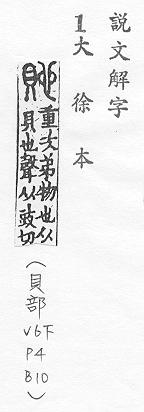 説文解字
1大徐本
貤
重次弟物也从
貝也聲以豉切
(貝部
V6下
P4
B10)